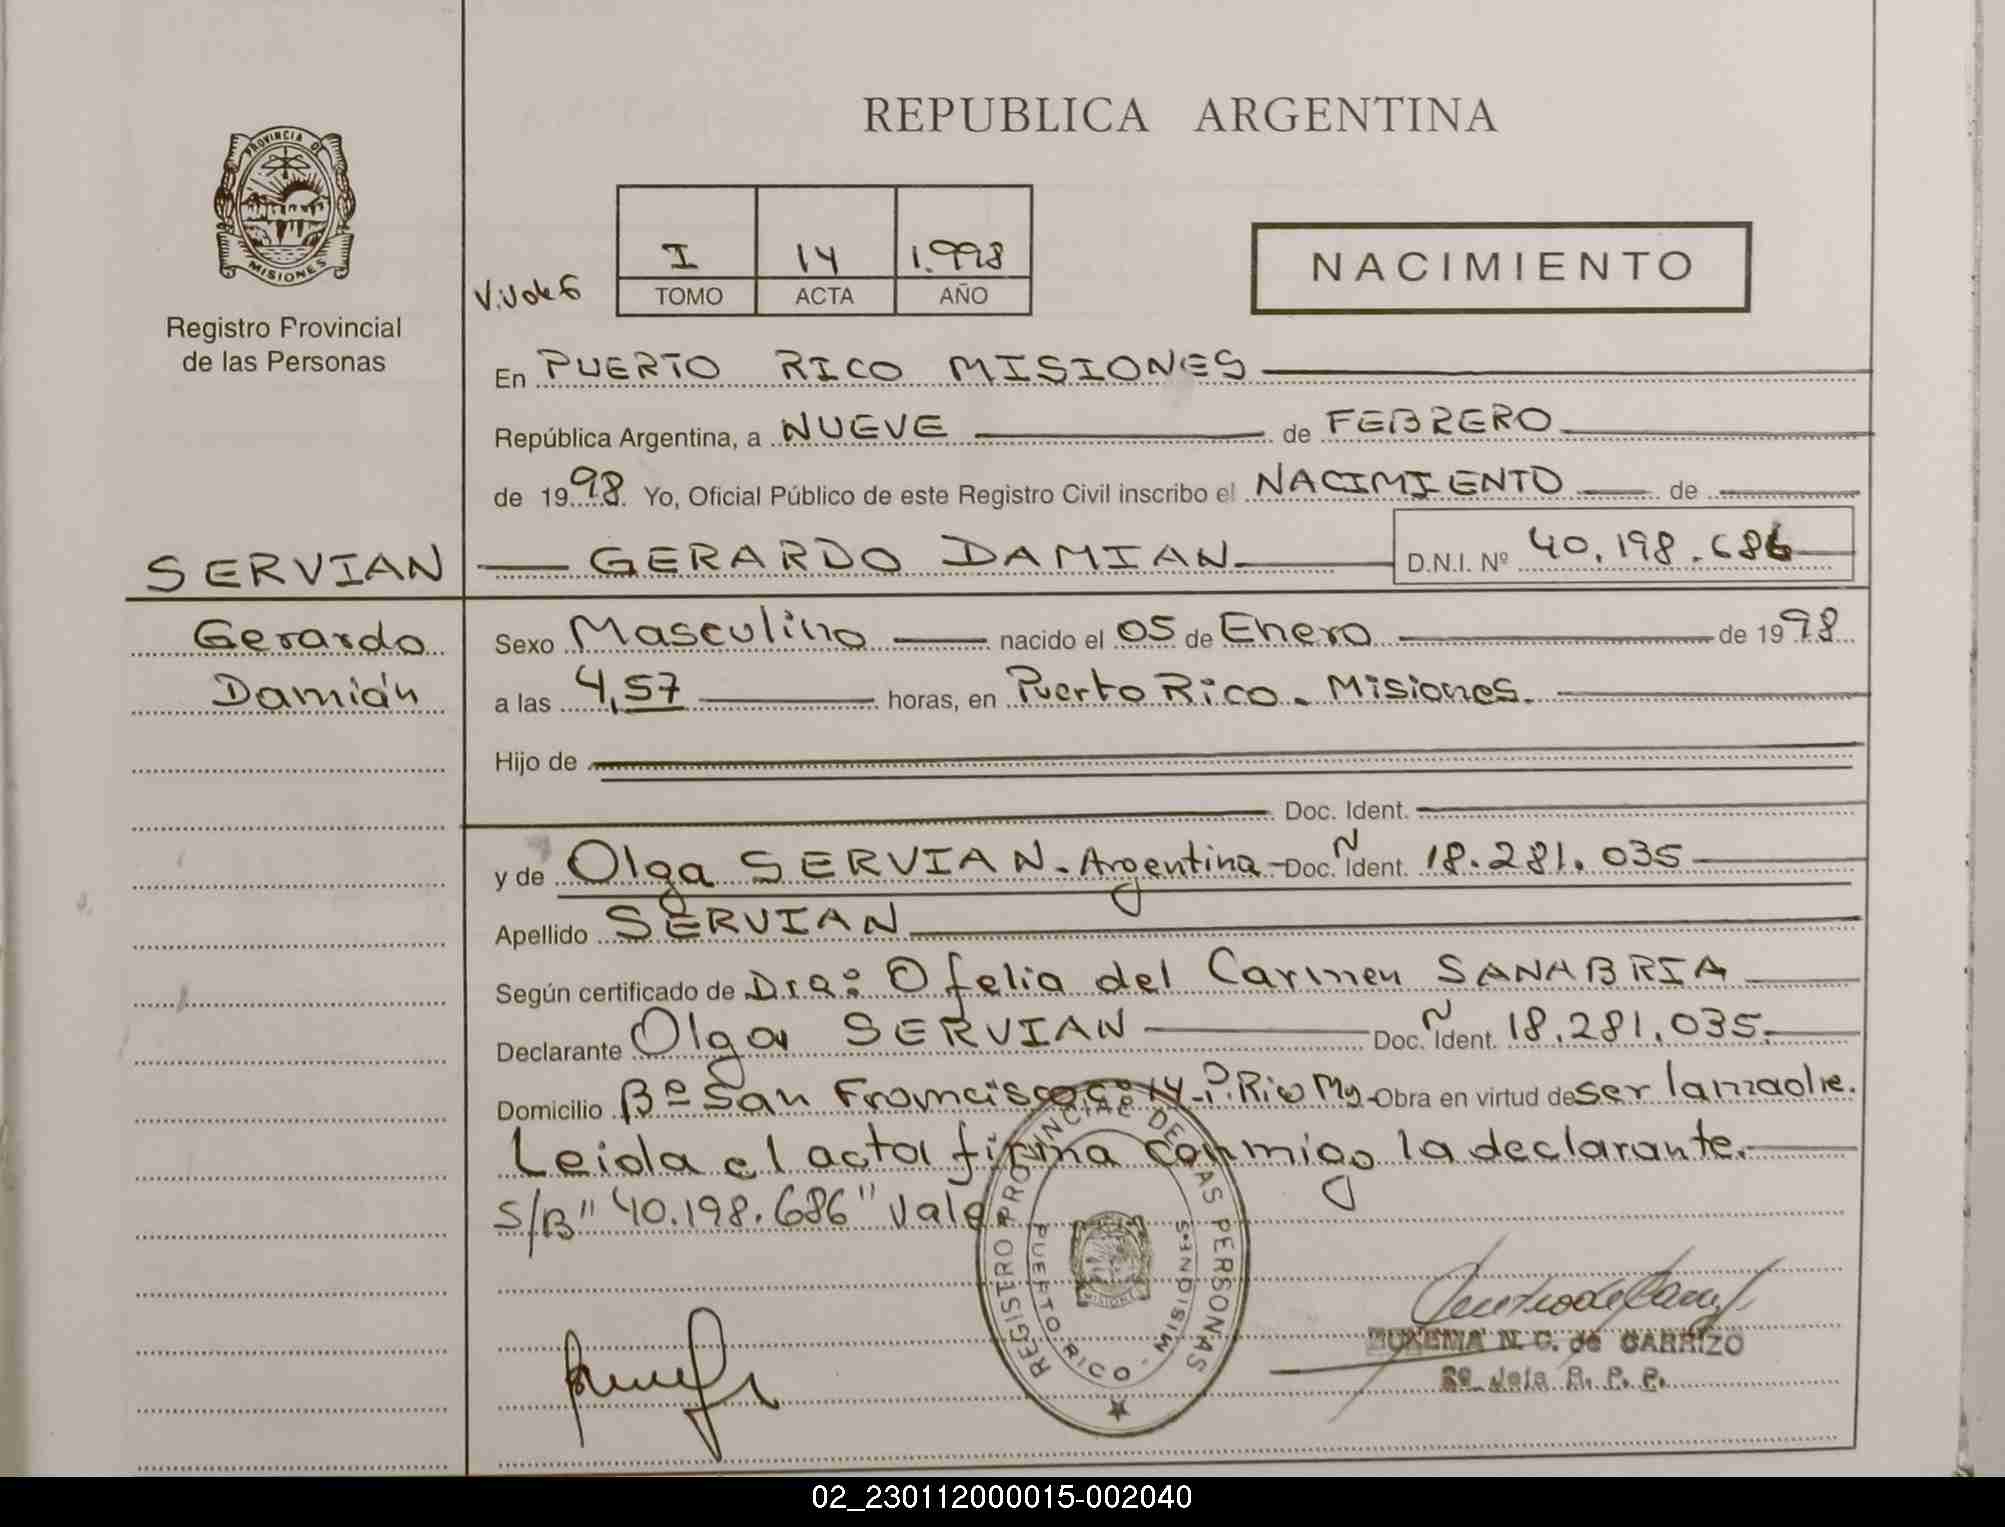 REPUBLICA ARGENTINA
PROVINCIA DE
MISIONES
Registro Provincial
de las Personas
I 14 1.998
TOMO ACTA AÑO
NACIMIENTO
En PUERTO RICO MISIONES
República Argentina, a NUEVE de FEBRERO
de 1998 Yo, Oficial Público de este Registro Civil inscribo el NACIMIENTO de
SERVIAN GERARDO DAMIAN D.N.I. Nº 40.198.686
Gerardo
Damián
Sexo Masculino nacido el 05 de Enero de 1998
a las 4,57 horas, en Puerto Rico. Misiones.
Hijo de
Doc. Ident.
y de Olga SERVIAN. Argentina - Doc. N Ident. 18.281.035
Apellido SERVIAN
Según certificado de Dra: Ofelia del Carmen SANABRIA
Declarante Olga SERVIAN Doc. N Ident. 18.281.035.
Domicilio Bº San Francisco 14 - P. Rico Obra en virtud de ser la madre.
Leida el acta firma conmigo la declarante.
S/B "40.198.686" Vale
REGISTRO PROVINCIAL DE LAS PERSONAS
PUERTO RICO - MISIONES
N. C. de CARRIZO
2º Jefe R. P. P.
02_230112000015-002040